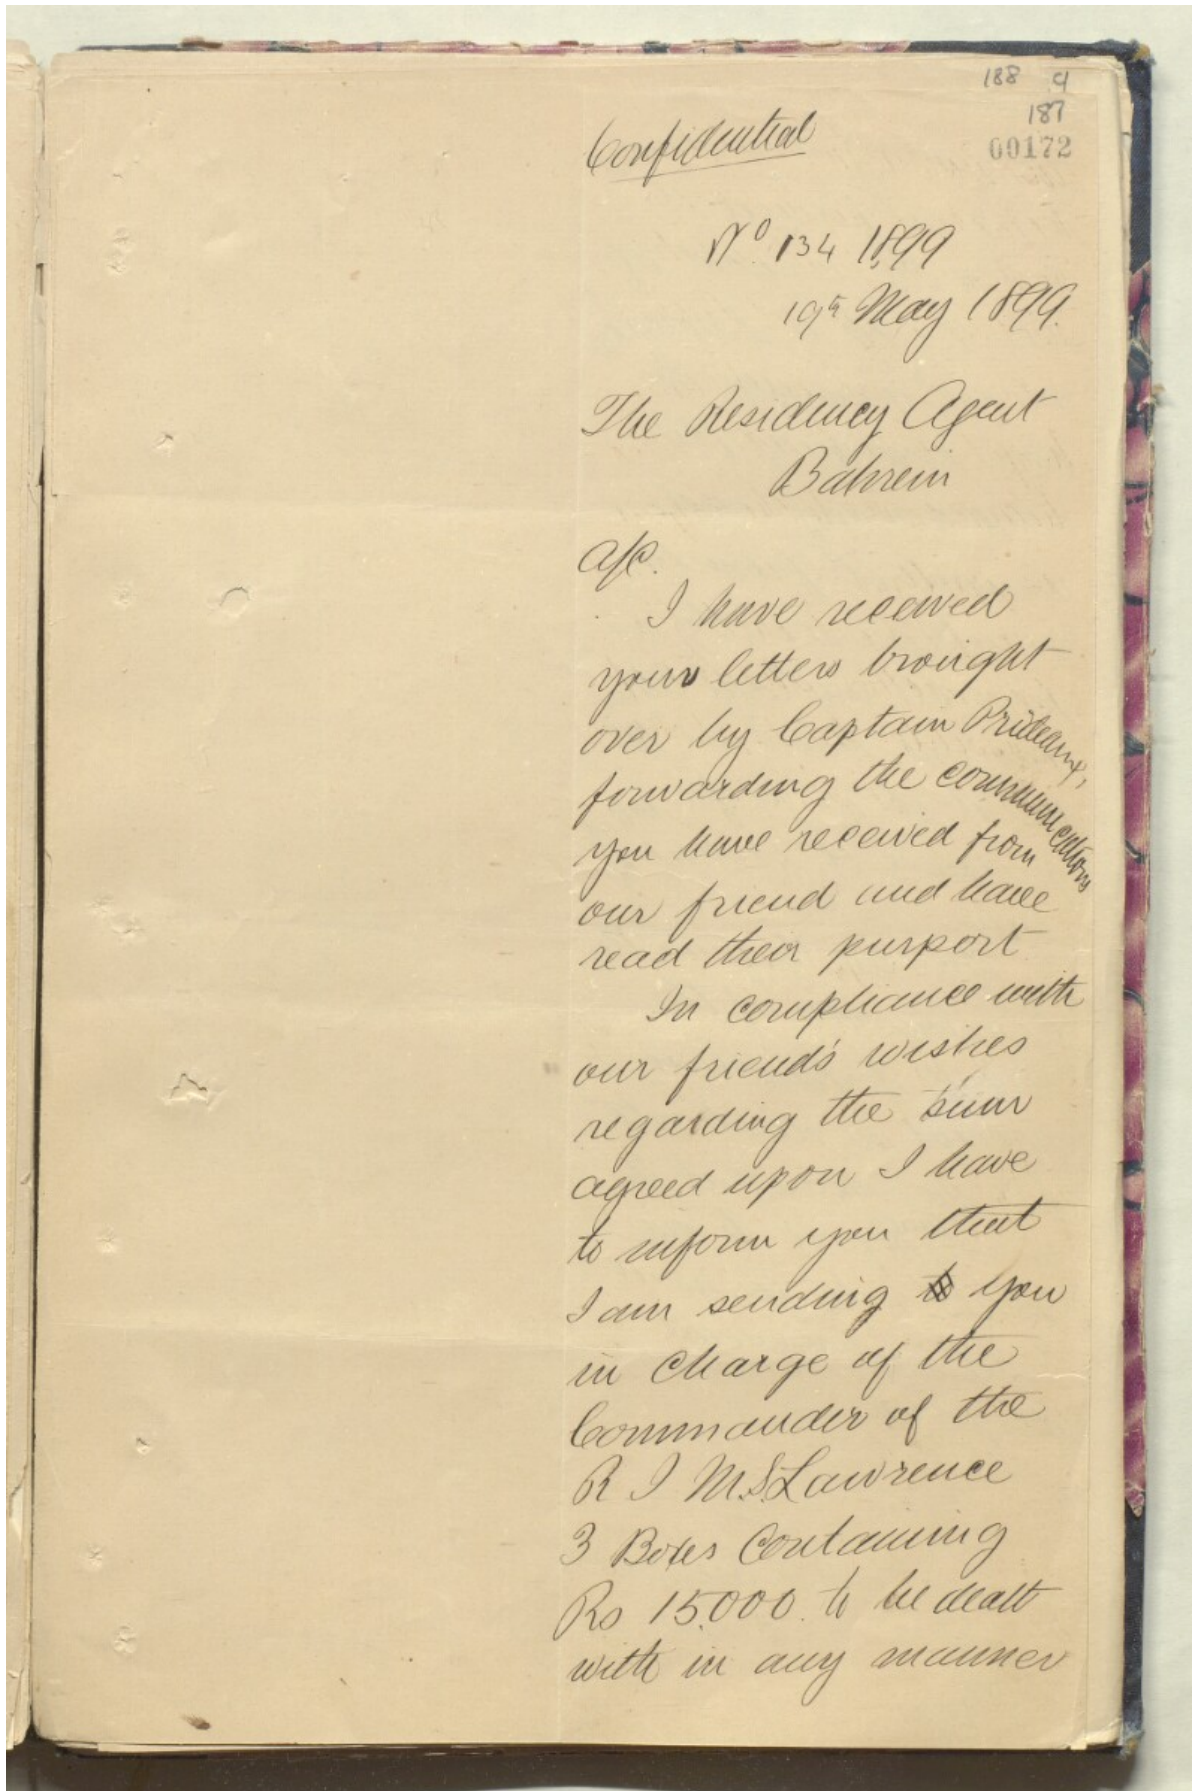 188 9
187
00172
Confidential
No 134 1899
19th May 1899.
The Residency Agent
Bahrein
A/C.
I have received
your letters brought
over by Captain Prideaux,
forwarding the communications
you have received from
our friend and have
read their purport
In compliance with
our friend's wishes
regarding the sum
agreed upon I have
to inform you that
I am sending to you
in charge of the
Commander of the
R I M.S. Lawrence
3 Boxes Containing
Rs 15,000. to be dealt
with in any manner